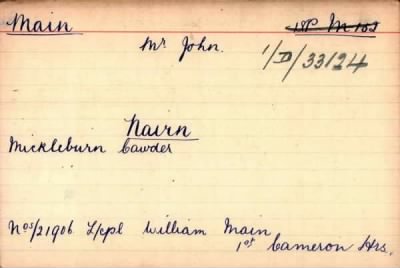 Main
Mr John.
1/D/33124
Nairn
Mickleburn Cawder
Nos/21906 L/cpl William Main
1st Cameron Hrs.